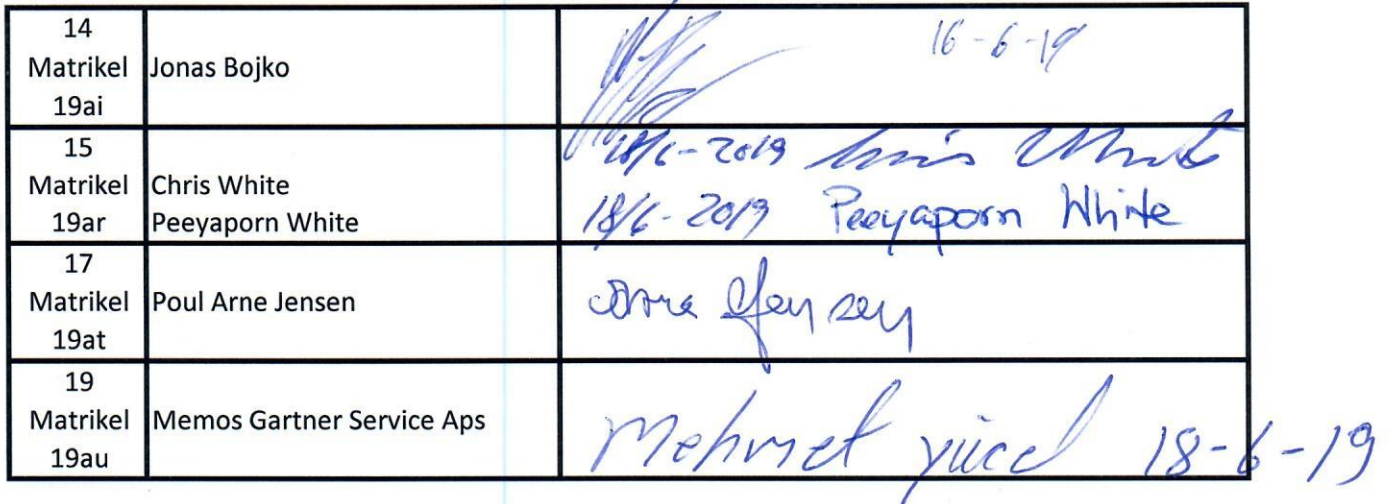 14
Matrikel
19ai
Jonas Bojko
16-6-19
15
Matrikel
19ar
Chris White
Peeyaporn White
18/6-2019 Chris White
18/6-2019 Peeyaporn White
17
Matrikel
19at
Poul Arne Jensen
Arne Jensen
19
Matrikel
19au
Memos Gartner Service Aps
Mehmet yücel 18-6-19